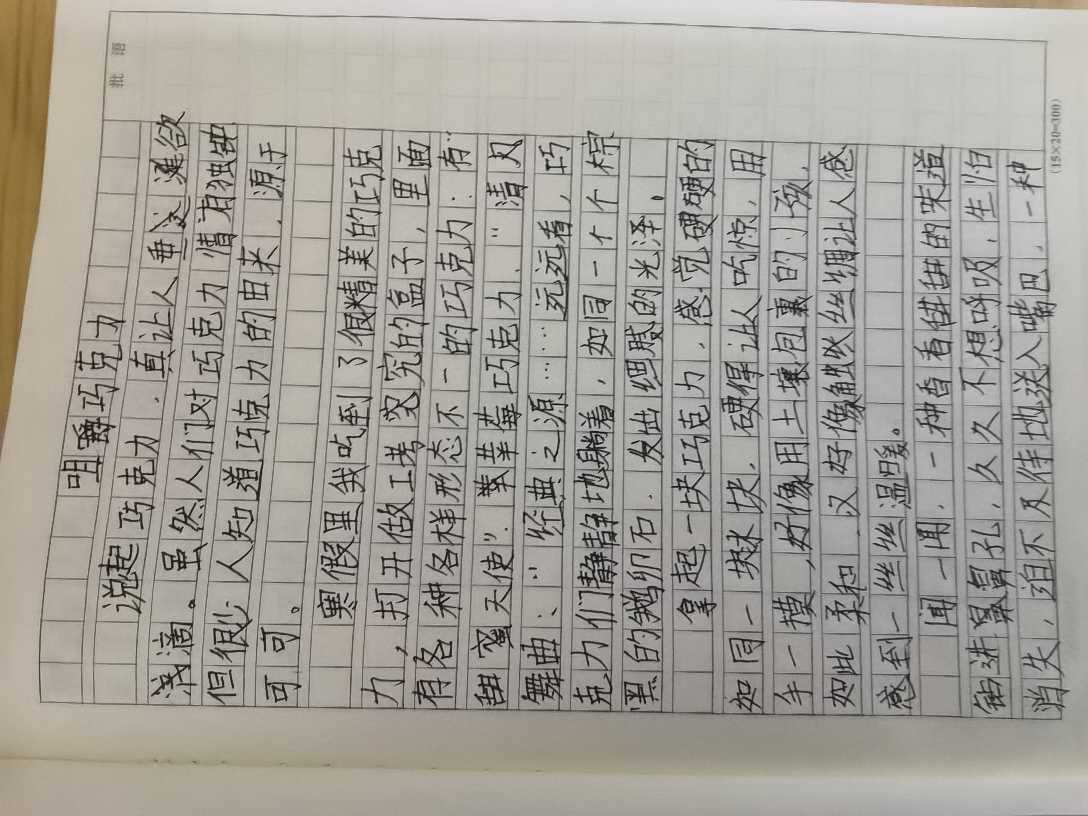 批 语
咀嚼巧克力
说起巧克力，真让人垂涎欲
滴。虽然人们对巧克力情有独钟
但很少人知道巧克力的由来，源于
可可。
寒假里我吃到了很精美的巧克
力，打开做工考究的盒子，里面
有各种各样形态不一的巧克力：有“
甜蜜天使”、草莓巧克力、“清风
舞曲、“经典之源……远远看，巧
克力们静静地躺着，如同一个个棕
黑的鹅卵石，发出细腻的光泽。
拿起一块巧克力，感觉硬硬的
如同一块木块，硬得让人吃惊，用
手一摸，好像用土壤包裹的小孩，
如此柔和，又好像触状丝绸让人感
感到一丝丝温暖。
闻一闻，一种香香甜甜的味道
钻进鼻孔，久久不想呼吸，生怕
消失，迫不及待地送入嘴巴，一种
(15×20=300)